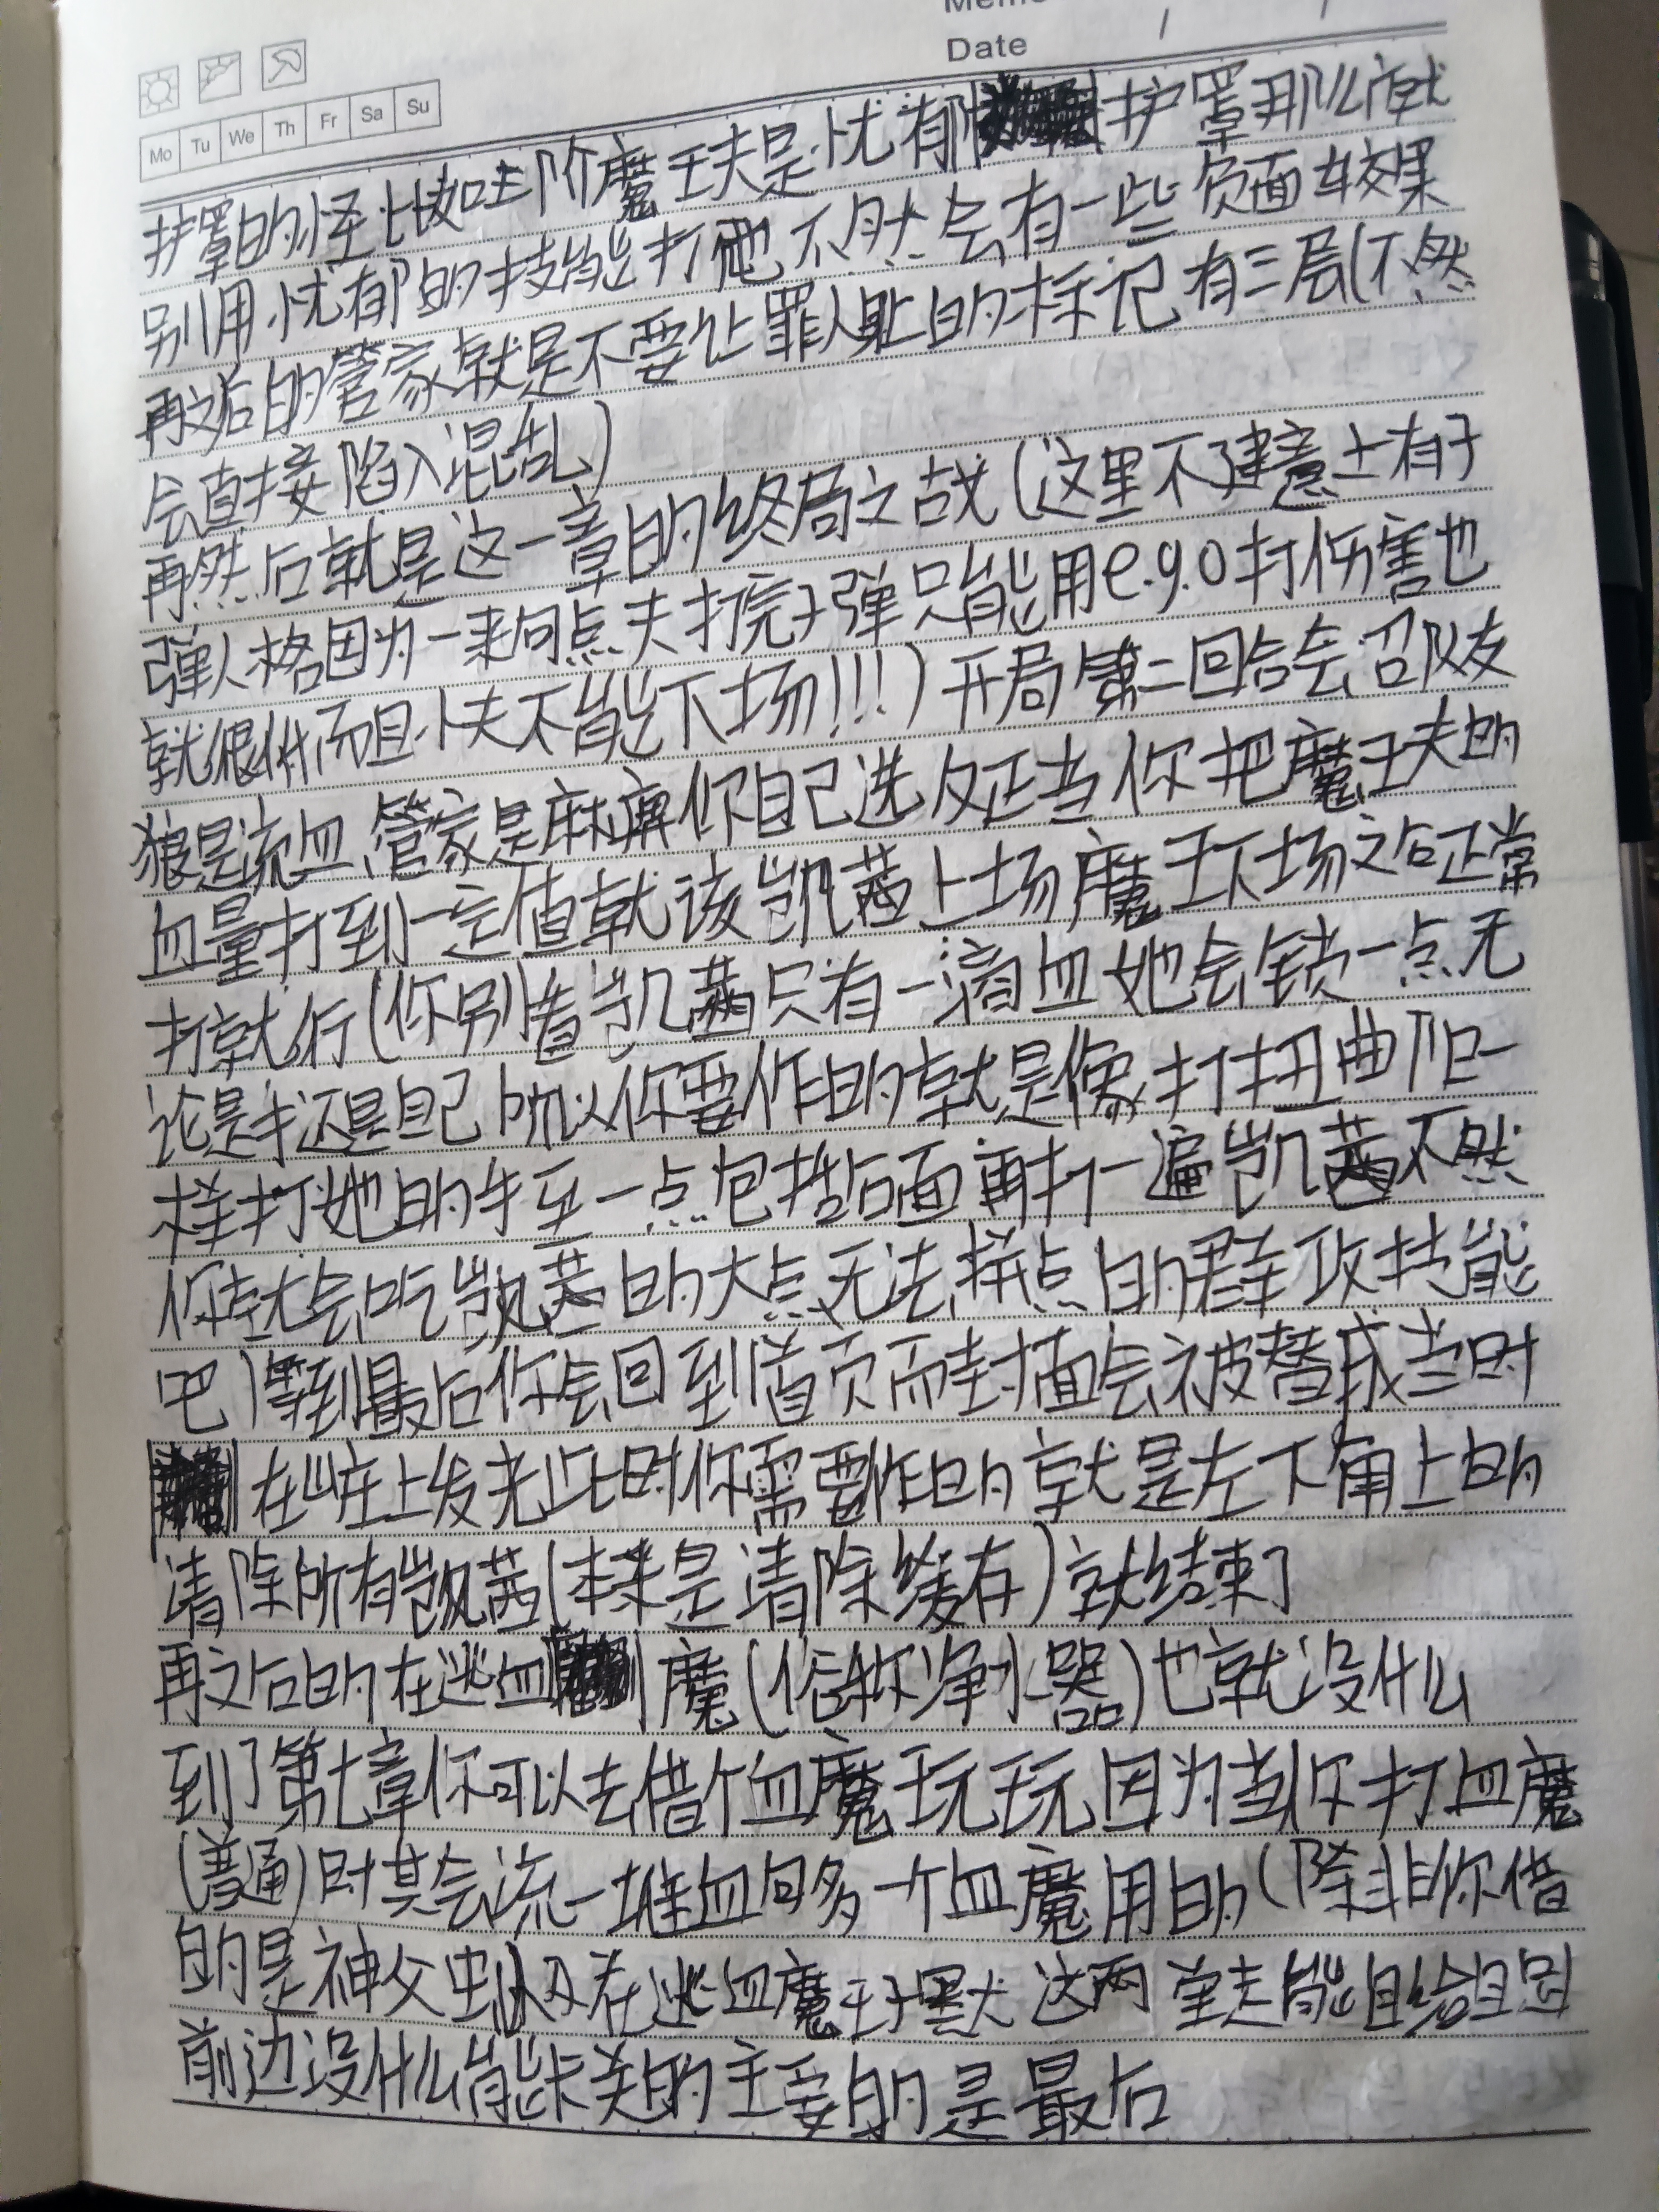 Memo
Date / /
Mo Tu We Th Fr Sa Su
护罩的怪比如三阶魔王夫是忧郁护罩那么就
别用忧郁的技能打他不然会有一些负面效果
再之后的管家就是不要让罪人身上的标记有三层(不然
会直接陷入混乱)
再然后就是这一章的终局之战(这里不建意上有子
弹人格因为一来回点夫打完子弹只能用e.g.o打伤害也
就很低而且小夫不能下场!!!)开局第二回合会召队友
狼是流血、管家是麻痹你自己选反正当你把魔王夫的
血量打到一定值就该凯茜上场魔王下场之后正常
打就行(你别看凯茜只有一滴血她会锁一点无
论是手还是自己所以你要作的就是像打扭曲阿巴一
样打她的手至一点包括后面再打一遍凯茜不然
你就会吃凯茜的大点无法拼点的群攻技能
吧)等到最后你会回到首页而封面会被替成当时
在山庄上发光此时你需要作的就是左下角上的
清除所有凯茜(本来是清除缓存)就结束了
再之后的在逃血魔(俗称净水器)也就没什么
到了第七章你可以去借个血魔玩玩因为当你打血魔
(普通)时其会流一堆血回多一个血魔用的(除非你借
的是神父虫以及在逃血魔王子默这两 能自给自
前边没什么能卡关的主要的是最后